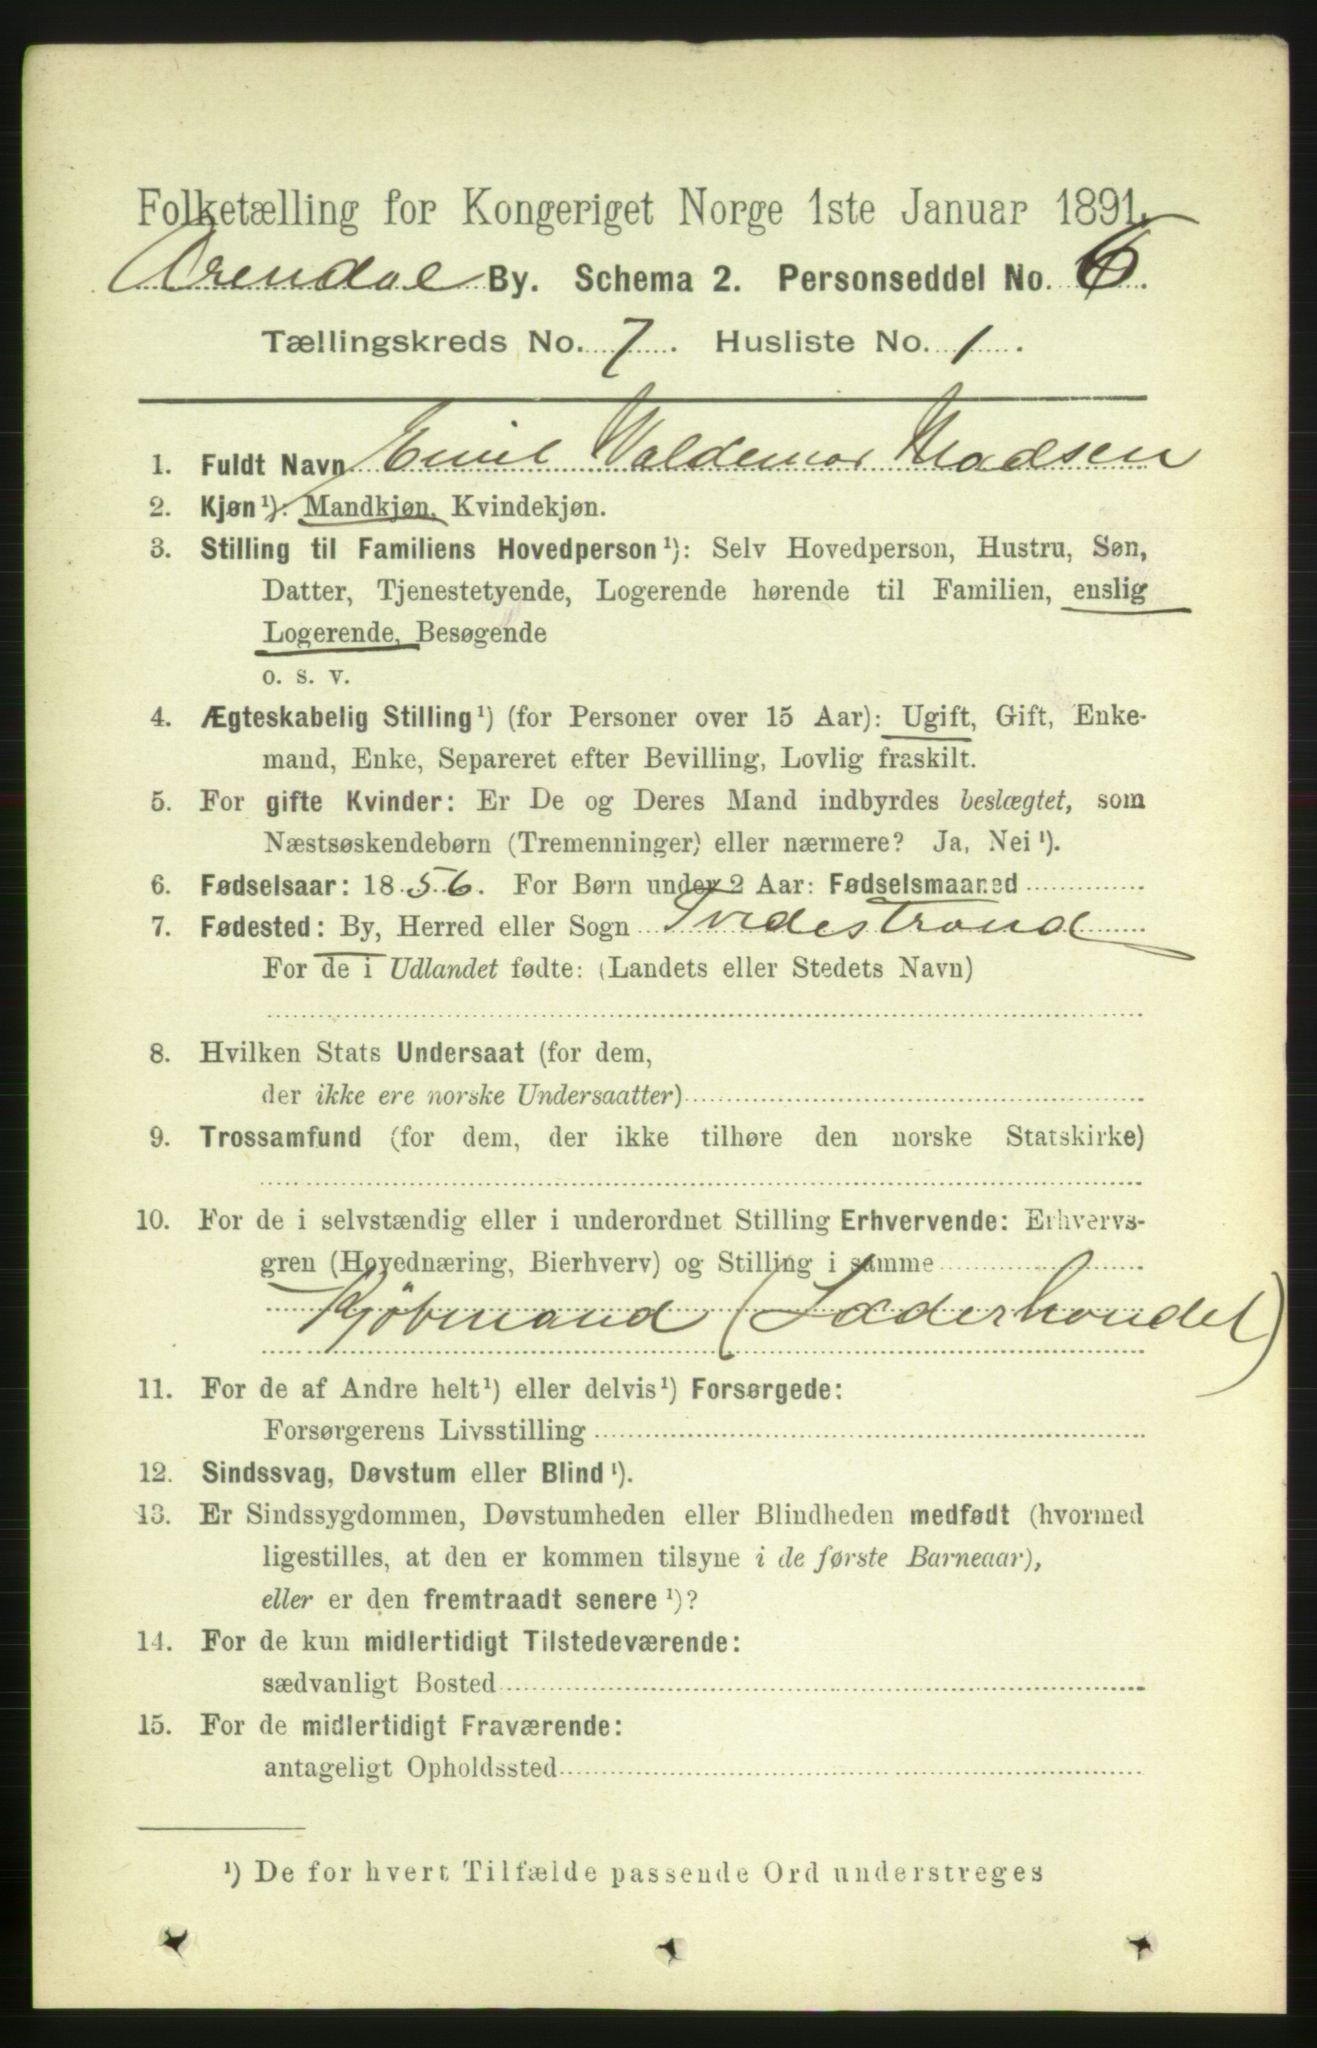 Folketælling for Kongeriget Norge 1ste Januar 1891.
Arendal By. Schema 2. Personseddel No. 6.
Tællingskreds No. 7. Husliste No. 1.
1. Fuldt Navn Emil Valdemar Madsen
2. Kjøn ¹): Mandkjøn, Kvindekjøn.
3. Stilling til Familiens Hovedperson ¹): Selv Hovedperson, Hustru, Søn,
Datter, Tjenestetyende, Logerende hørende til Familien, enslig
Logerende, Besøgende
o. s. v.
4. Ægteskabelig Stilling ¹) (for Personer over 15 Aar): Ugift, Gift, Enke-
mand, Enke, Separeret efter Bevilling, Lovlig fraskilt.
5. For gifte Kvinder: Er De og Deres Mand indbyrdes beslægtet, som
Næstsøskendebørn (Tremenninger) eller nærmere? Ja, Nei ¹).
6. Fødselsaar: 1856. For Børn under 2 Aar: Fødselsmaaned
7. Fødested: By, Herred eller Sogn Tvedestrand
For de i Udlandet fødte: (Landets eller Stedets Navn)
8. Hvilken Stats Undersaat (for dem,
der ikke ere norske Undersaatter)
9. Trossamfund (for dem, der ikke tilhøre den norske Statskirke)
10. For de i selvstændig eller i underordnet Stilling Erhvervende: Erhvervs-
gren (Hovednæring, Bierhverv) og Stilling i samme
Kjöbmand (Læderhandel)
11. For de af Andre helt ¹) eller delvis ¹) Forsørgede:
Forsørgerens Livsstilling
12. Sindssvag, Døvstum eller Blind ¹).
13. Er Sindssygdommen, Døvstumheden eller Blindheden medfødt (hvormed
ligestilles, at den er kommen tilsyne i de første Barneaar),
eller er den fremtraadt senere ¹)?
14. For de kun midlertidigt Tilstedeværende:
sædvanligt Bosted
15. For de midlertidigt Fraværende:
antageligt Opholdssted
¹) De for hvert Tilfælde passende Ord understreges